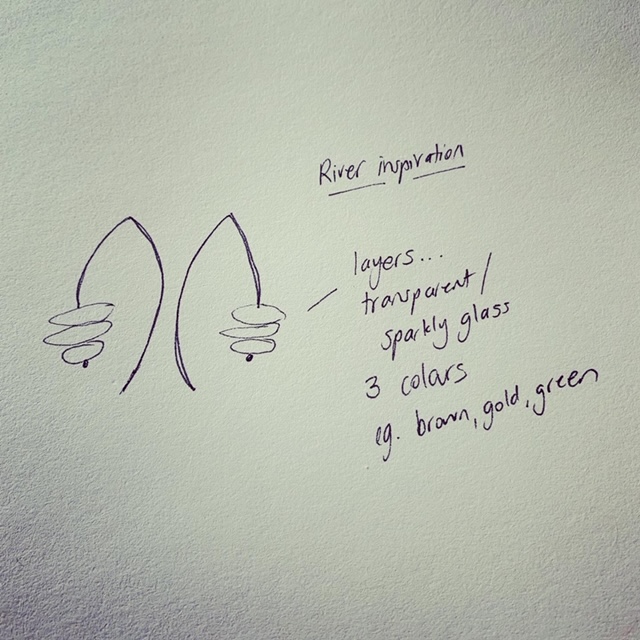 River inspiration
layers...
transparent/
sparkly glass
3 colars
eg. brown, gold, green